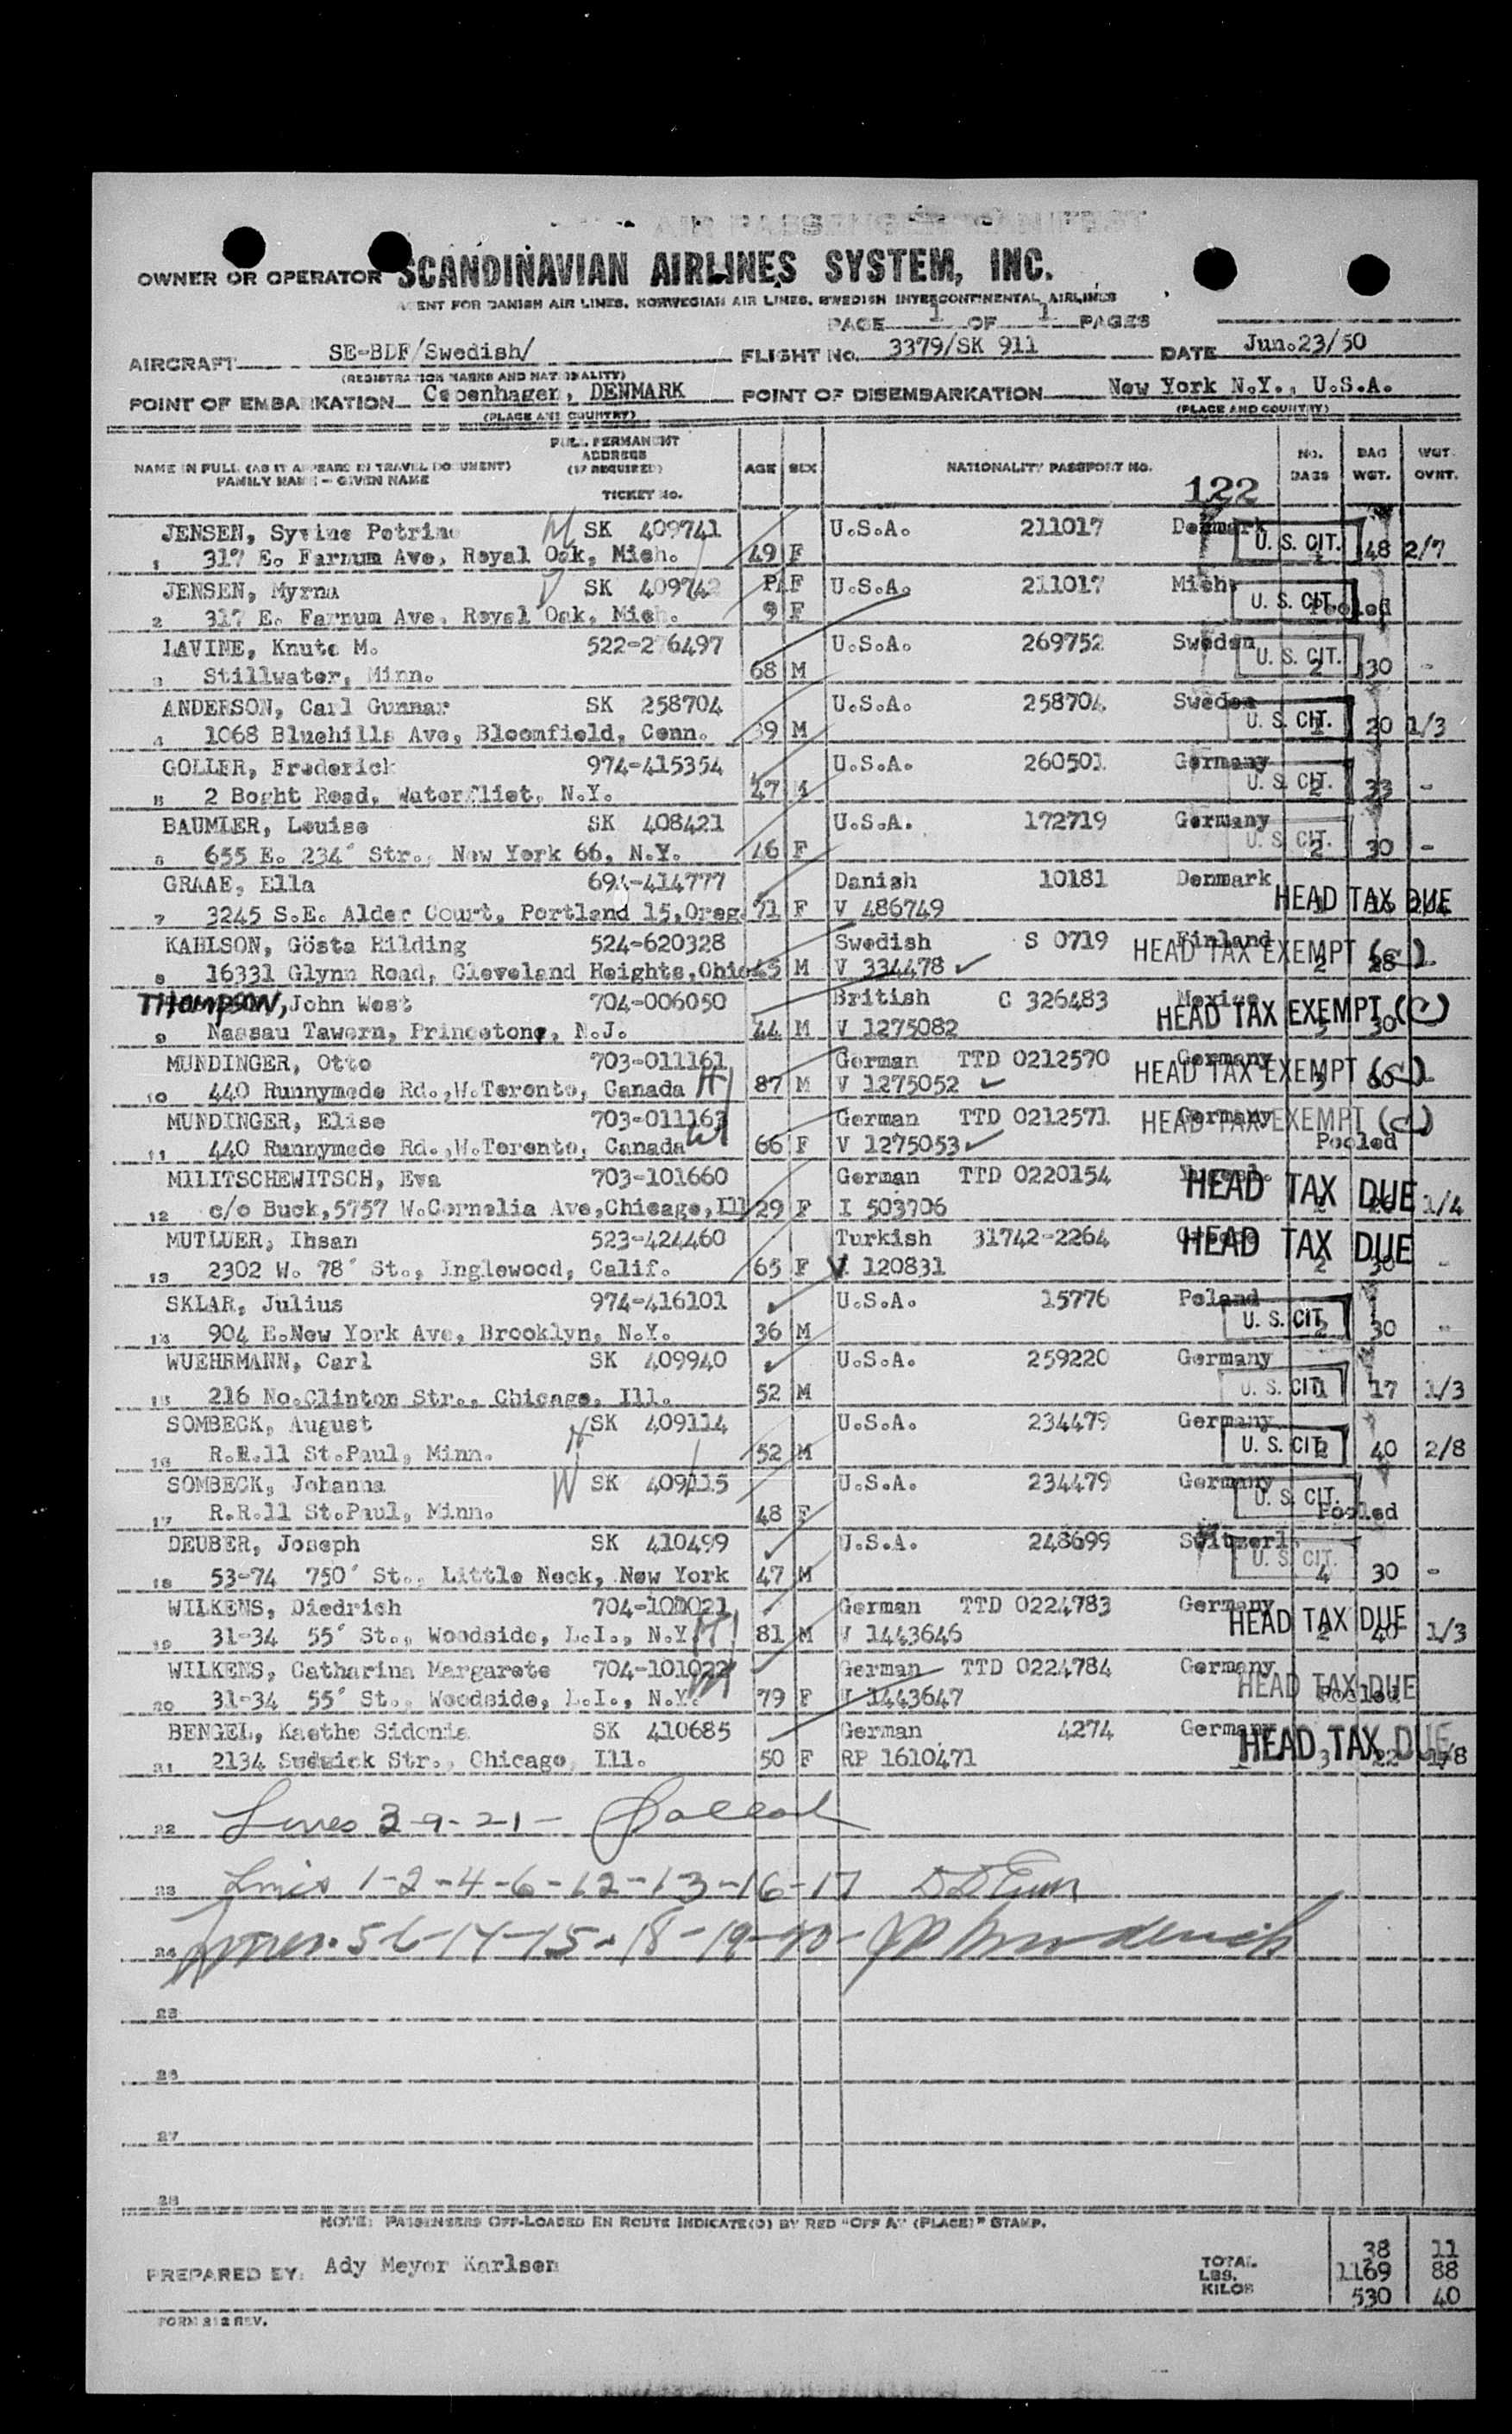 AIR PASSENGER MANIFEST
OWNER OR OPERATOR SCANDINAVIAN AIRLINES SYSTEM, INC.
AGENT FOR DANISH AIR LINES, NORWEGIAN AIR LINES, SWEDISH INTERCONTINENTAL AIRLINES
PAGE 1 OF 1 PAGES
AIRCRAFT SE-BDF/Swedish/ FLIGHT No. 3379/SK 911 DATE Jun.23/50
(REGISTRATION MARKS AND NATIONALITY)
POINT OF EMBARKATION Copenhagen, DENMARK POINT OF DISEMBARKATION New York N.Y., U.S.A.
(PLACE AND COUNTRY) (PLACE AND COUNTRY)
NAME IN FULL (AS IT APPEARS IN TRAVEL DOCUMENT) FAMILY NAME - GIVEN NAME FULL PERMANENT ADDRESS (IF REQUIRED) TICKET NO. AGE SEX NATIONALITY PASSPORT NO. NO. BAGS BAG WGT. WGT. OVHT.
122
JENSEN, Syvine Petrine M SK 409741 U.S.A. 211017 Denmark
1 317 E. Farnum Ave, Royal Oak, Mich. 49 F U. S. CIT. 48 2/7
JENSEN, Myrna SK 409742 F U.S.A. 211017 Mich.
2 317 E. Farnum Ave, Royal Oak, Mich. 9 F U. S. CIT. Pooled
LAVINE, Knute M. 522-276497 U.S.A. 269752 Sweden
3 Stillwater, Minn. 68 M U. S. CIT. 2 30 -
ANDERSON, Carl Gunnar SK 258704 U.S.A. 258704 Sweden
4 1068 Bluehills Ave, Bloomfield, Conn. 39 M U. S. CIT. 1 20 1/3
GOLLER, Frederick 974-415354 U.S.A. 260501 Germany
5 2 Boght Road, Waterfliet, N.Y. 47 M U. S. CIT. 2 33 -
BAUMLER, Louise SK 408421 U.S.A. 172719 Germany
6 655 E. 234' Str., New York 66, N.Y. 46 F U. S. CIT. 2 30 -
GRAAE, Ella 694-414777 Danish 10181 Denmark
7 3245 S.E. Alder Court, Portland 15,Oreg. 71 F V 486749 HEAD TAX DUE
KAHLSON, Gösta Hilding 524-620328 Swedish S 0719 Finland
8 16331 Glynn Road, Cleveland Heights,Ohio 45 M V 334478 HEAD TAX EXEMPT 2 28
THOMPSON, John West 704-006050 British C 326483 Mexico
9 Nassau Tawern, Princetong, N.J. 44 M V 1275082 HEAD TAX EXEMPT 3 30
MUNDINGER, Otto 703-011161 German TTD 0212570 Germany
10 440 Runnymede Rd.,W.Toronto, Canada H 87 M V 1275052 HEAD TAX EXEMPT 3 60
MUNDINGER, Elise 703-011163 German TTD 0212571 Germany
11 440 Runnymede Rd.,W.Toronto, Canada W 66 F V 1275053 HEAD TAX EXEMPT Pooled
MILITSCHEWITSCH, Eva 703-101660 German TTD 0220154
12 c/o Buck,5757 W.Cornelia Ave,Chicago,Ill 29 F I 503706 HEAD TAX DUE 1/4
MUTLUER, Ihsan 523-424460 Turkish 31742-2264 Greece
13 2302 W. 78' St., Inglewood, Calif. 65 F V 120831 HEAD TAX DUE 2 30 -
SKLAR, Julius 974-416101 U.S.A. 15776 Poland
14 904 E.New York Ave, Brooklyn, N.Y. 36 M U. S. CIT. 2 30 -
WUEHRMANN, Carl SK 409940 U.S.A. 259220 Germany
15 216 No.Clinton Str., Chicago, Ill. 52 M U. S. CIT. 1 17 1/3
SOMBECK, August H SK 409114 U.S.A. 234479 Germany
16 R.R.11 St.Paul, Minn. 52 M U. S. CIT. 2 40 2/8
SOMBECK, Johanna W SK 409115 U.S.A. 234479 Germany
17 R.R.11 St.Paul, Minn. 48 F U. S. CIT. Pooled
DEUBER, Joseph SK 410499 U.S.A. 248699 Switzerl.
18 53-74 750' St., Little Neck, New York 47 M U. S. CIT. 4 30 -
WILKENS, Diedrich 704-101021 German TTD 0224783 Germany
19 31-34 55' St., Woodside, L.I., N.Y. H 81 M V 1443646 HEAD TAX DUE 2 40 1/3
WILKENS, Catharina Margarete 704-101022 German TTD 0224784 Germany
20 31-34 55' St., Woodside, L.I., N.Y. W 79 F V 1443647 HEAD TAX DUE Pooled
BENGEL, Kaethe Sidonia SK 410685 German 4274 Germany
21 2134 Sudwick Str., Chicago, Ill. 50 F RP 1610471 HEAD TAX DUE 3 22 1/8
22 Lines 3-9-21-
23 Lines 1-2-4-6-12-13-16-17
24 Lines 5-6-14-15-18-19-20-
25
26
27
28
NOTE: PASSENGERS OFF-LOADED EN ROUTE INDICATE(D) BY RED "OFF AT (PLACE)" STAMP.
PREPARED BY: Ady Meyer Karlsen
TOTAL 38 11
LBS. 1169 88
KILOS 530 40
FORM 212 REV.